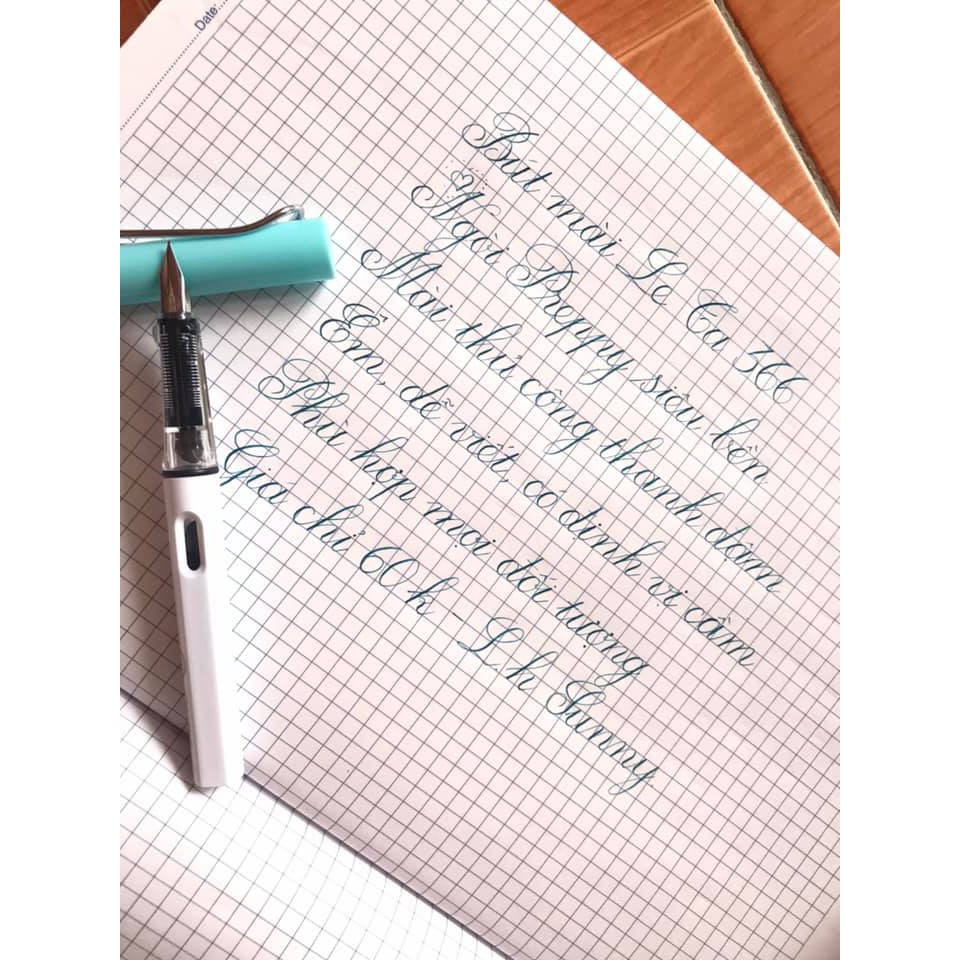 Date:
Bút mài Le Ca 366
Ngòi Preppy siêu bền
Mài thủ công thanh đậm
Êm, dễ viết, có định vị cầm
Phù hợp mọi đối tượng
Gia chỉ 60 k - L.h Sunny